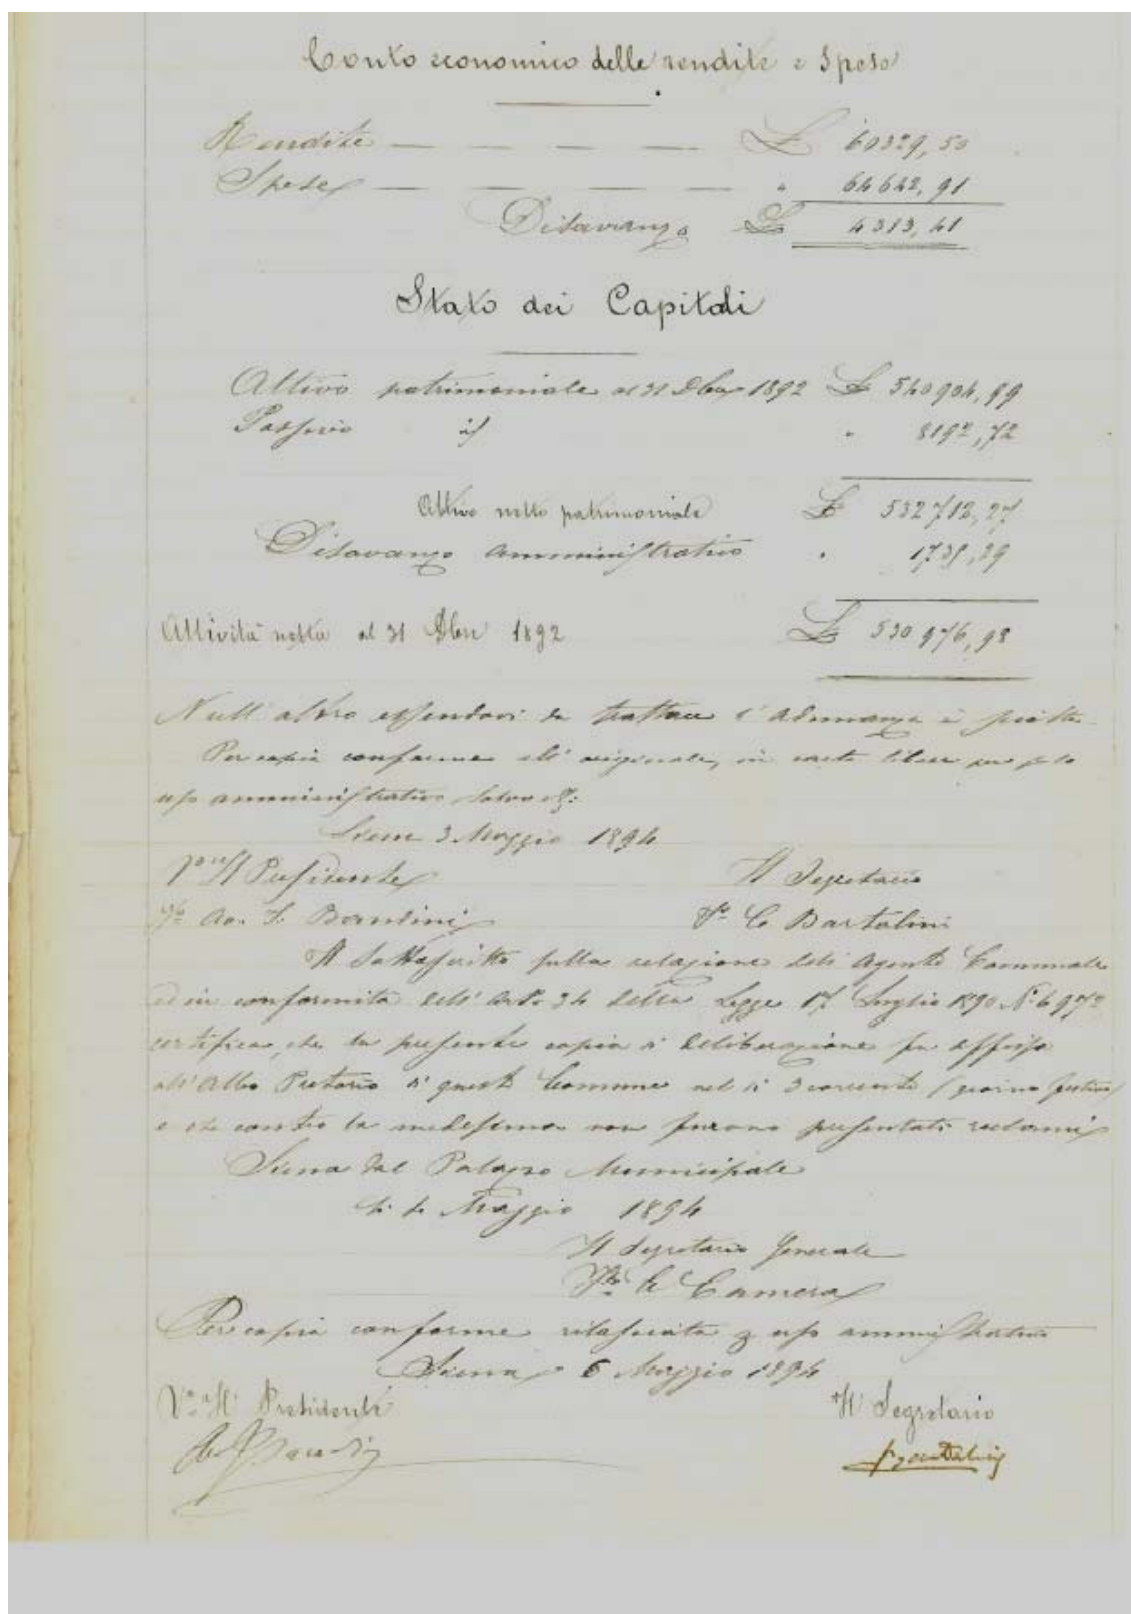 Conto economico delle rendite e spese
Rendite — — — — £ 60329,50
Spese — — — — — " 64642,91
Disavanzo £ 4313,41
Stato dei Capitali
Attivo patrimoniale al 31 Dbre 1892 £ 540904,99
Passivo id " 8192,72
Attivo netto patrimoniale £ 532712,27
Disavanzo amministrativo " 1735,29
Attività netta al 31 Dbre 1892 £ 530976,98
Null'altro essendovi da trattare l'adunanza è sciolta
Per copia conforme all'originale, in carta libera per solo
uso amministrativo
Siena 3 Maggio 1894
Il Presidente Il Segretario
F.to Bandini F.to C Bartalini
Il Sottoscritto sulla relazione dell'Agente Comunale
ed in conformità dell'Art. 34 della Legge 17 Luglio 1890 N. 6972
certifica che la presente copia di deliberazione fu affissa
all'Albo Pretorio di questo Comune nel dì 3 corrente (giorno festivo)
e che contro la medesima non furono presentati reclami
Siena dal Palazzo Municipale
li 4 Maggio 1894
Il Segretario Generale
F.to Camera
Per copia conforme rilasciata p uso amministrativo
Siena 6 Maggio 1894
Il Presidente Il Segretario